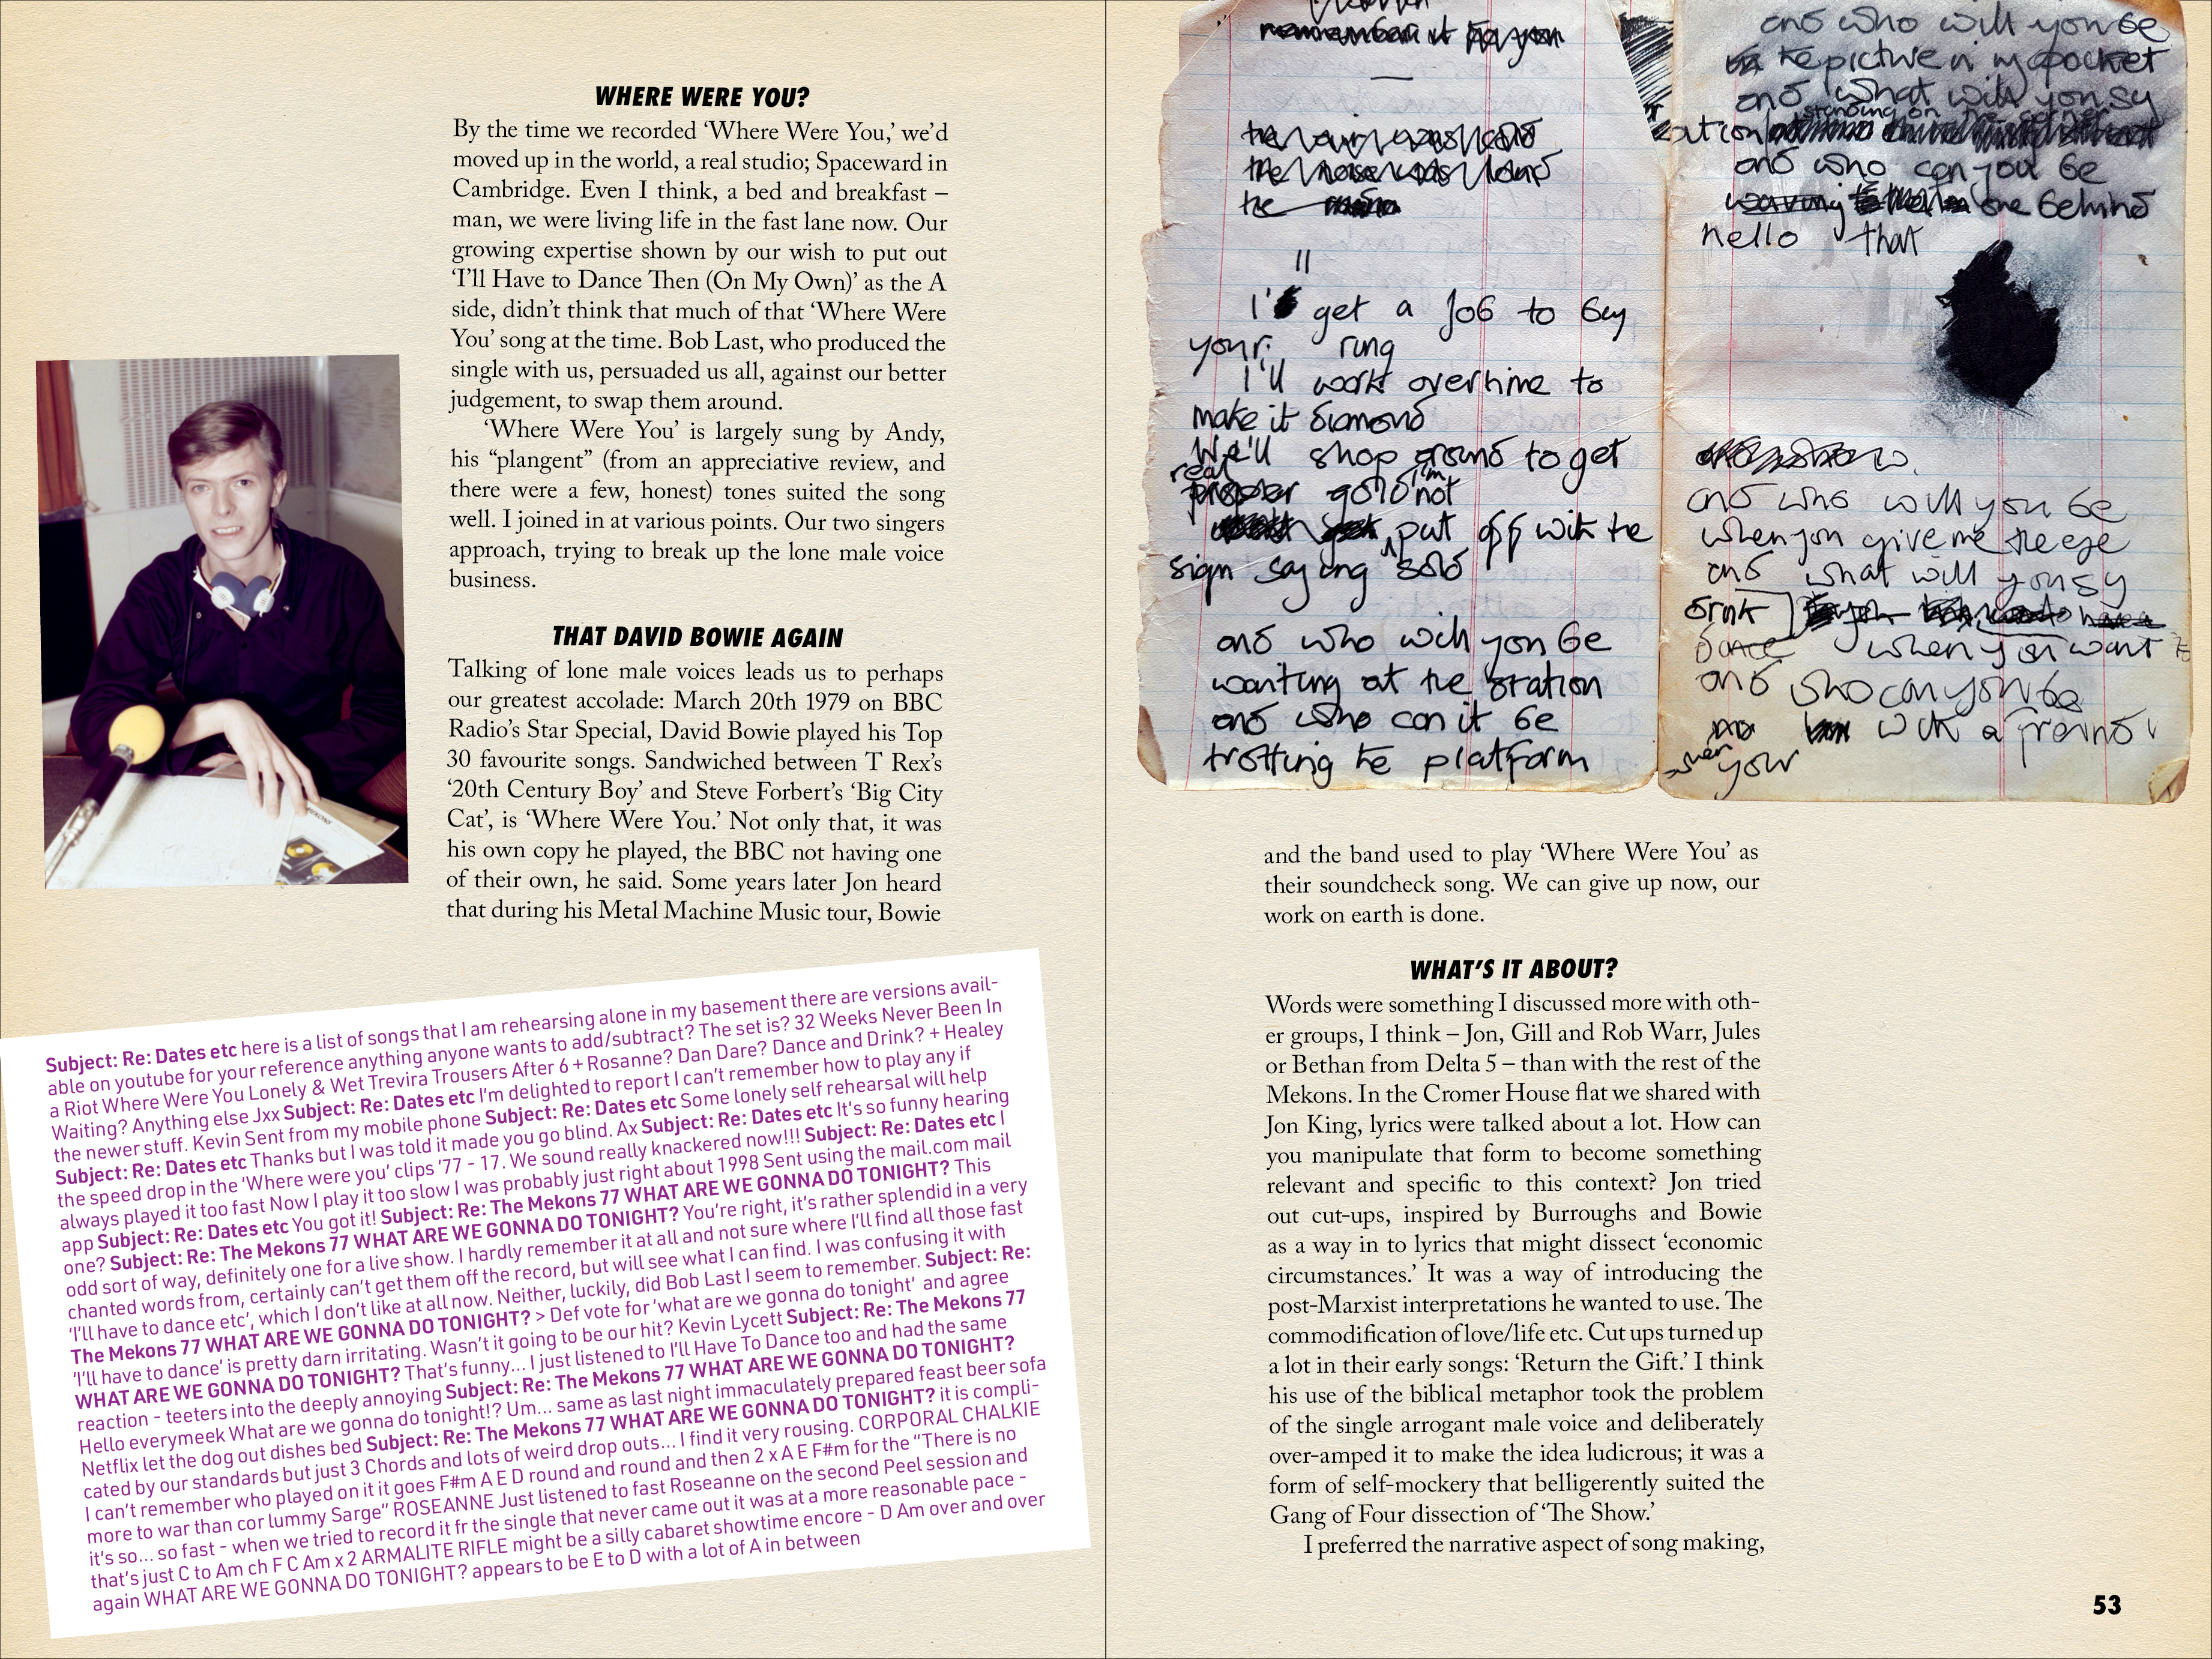 WHERE WERE YOU?
By the time we recorded ‘Where Were You,’ we’d
moved up in the world, a real studio; Spaceward in
Cambridge. Even I think, a bed and breakfast –
man, we were living life in the fast lane now. Our
growing expertise shown by our wish to put out
‘I’ll Have to Dance Then (On My Own)’ as the A
side, didn’t think that much of that ‘Where Were
You’ song at the time. Bob Last, who produced the
single with us, persuaded us all, against our better
judgement, to swap them around.
‘Where Were You’ is largely sung by Andy,
his “plangent” (from an appreciative review, and
there were a few, honest) tones suited the song
well. I joined in at various points. Our two singers
approach, trying to break up the lone male voice
business.
THAT DAVID BOWIE AGAIN
Talking of lone male voices leads us to perhaps
our greatest accolade: March 20th 1979 on BBC
Radio’s Star Special, David Bowie played his Top
30 favourite songs. Sandwiched between T Rex’s
‘20th Century Boy’ and Steve Forbert’s ‘Big City
Cat’, is ‘Where Were You.’ Not only that, it was
his own copy he played, the BBC not having one
of their own, he said. Some years later Jon heard
that during his Metal Machine Music tour, Bowie
Subject: Re: Dates etc here is a list of songs that I am rehearsing alone in my basement there are versions avail-
able on youtube for your reference anything anyone wants to add/subtract? The set is? 32 Weeks Never Been In
a Riot Where Were You Lonely & Wet Trevira Trousers After 6 + Rosanne? Dan Dare? Dance and Drink? + Healey
Waiting? Anything else Jxx Subject: Re: Dates etc I’m delighted to report I can’t remember how to play any if
the newer stuff. Kevin Sent from my mobile phone Subject: Re: Dates etc Some lonely self rehearsal will help
Subject: Re: Dates etc Thanks but I was told it made you go blind. Ax Subject: Re: Dates etc It’s so funny hearing
the speed drop in the ‘Where were you’ clips ‘77 - 17. We sound really knackered now!!! Subject: Re: Dates etc I
always played it too fast Now I play it too slow I was probably just right about 1998 Sent using the mail.com mail
app Subject: Re: Dates etc You got it! Subject: Re: The Mekons 77 WHAT ARE WE GONNA DO TONIGHT? This
one? Subject: Re: The Mekons 77 WHAT ARE WE GONNA DO TONIGHT? You’re right, it’s rather splendid in a very
odd sort of way, definitely one for a live show. I hardly remember it at all and not sure where I’ll find all those fast
chanted words from, certainly can’t get them off the record, but will see what I can find. I was confusing it with
‘I’ll have to dance etc’, which I don’t like at all now. Neither, luckily, did Bob Last I seem to remember. Subject: Re:
The Mekons 77 WHAT ARE WE GONNA DO TONIGHT? > Def vote for ‘what are we gonna do tonight’ and agree
‘I’ll have to dance’ is pretty darn irritating. Wasn’t it going to be our hit? Kevin Lycett Subject: Re: The Mekons 77
WHAT ARE WE GONNA DO TONIGHT? That’s funny... I just listened to I’ll Have To Dance too and had the same
reaction - teeters into the deeply annoying Subject: Re: The Mekons 77 WHAT ARE WE GONNA DO TONIGHT?
Hello everymeek What are we gonna do tonight!? Um... same as last night immaculately prepared feast beer sofa
Netflix let the dog out dishes bed Subject: Re: The Mekons 77 WHAT ARE WE GONNA DO TONIGHT? it is compli-
cated by our standards but just 3 Chords and lots of weird drop outs... I find it very rousing. CORPORAL CHALKIE
I can’t remember who played on it it goes F#m A E D round and round and then 2 x A E F#m for the “There is no
more to war than cor lummy Sarge” ROSEANNE Just listened to fast Roseanne on the second Peel session and
it’s so... so fast - when we tried to record it fr the single that never came out it was at a more reasonable pace -
that’s just C to Am ch F C Am x 2 ARMALITE RIFLE might be a silly cabaret showtime encore - D Am over and over
again WHAT ARE WE GONNA DO TONIGHT? appears to be E to D with a lot of A in between
remember it
the rain was cold
the noise was loud
the
II
I'll get a job to buy
your ring
I'll work overtime to
make it diamond
We'll shop around to get
real
proper gold I'm not
put off with the
sign saying sold
and who will you be
waiting at the station
and who can it be
trotting the platform
and who will you be
the picture in my pocket
and what will you say
standing on the
and who can you be
waving one behind
hello that
and who will you be
when you give me the eye
and what will you say
drink
dance when you want to
and who can you be
with a friend
when your
and the band used to play ‘Where Were You’ as
their soundcheck song. We can give up now, our
work on earth is done.
WHAT’S IT ABOUT?
Words were something I discussed more with oth-
er groups, I think – Jon, Gill and Rob Warr, Jules
or Bethan from Delta 5 – than with the rest of the
Mekons. In the Cromer House flat we shared with
Jon King, lyrics were talked about a lot. How can
you manipulate that form to become something
relevant and specific to this context? Jon tried
out cut-ups, inspired by Burroughs and Bowie
as a way in to lyrics that might dissect ‘economic
circumstances.’ It was a way of introducing the
post-Marxist interpretations he wanted to use. The
commodification of love/life etc. Cut ups turned up
a lot in their early songs: ‘Return the Gift.’ I think
his use of the biblical metaphor took the problem
of the single arrogant male voice and deliberately
over-amped it to make the idea ludicrous; it was a
form of self-mockery that belligerently suited the
Gang of Four dissection of ‘The Show.’
I preferred the narrative aspect of song making,
53